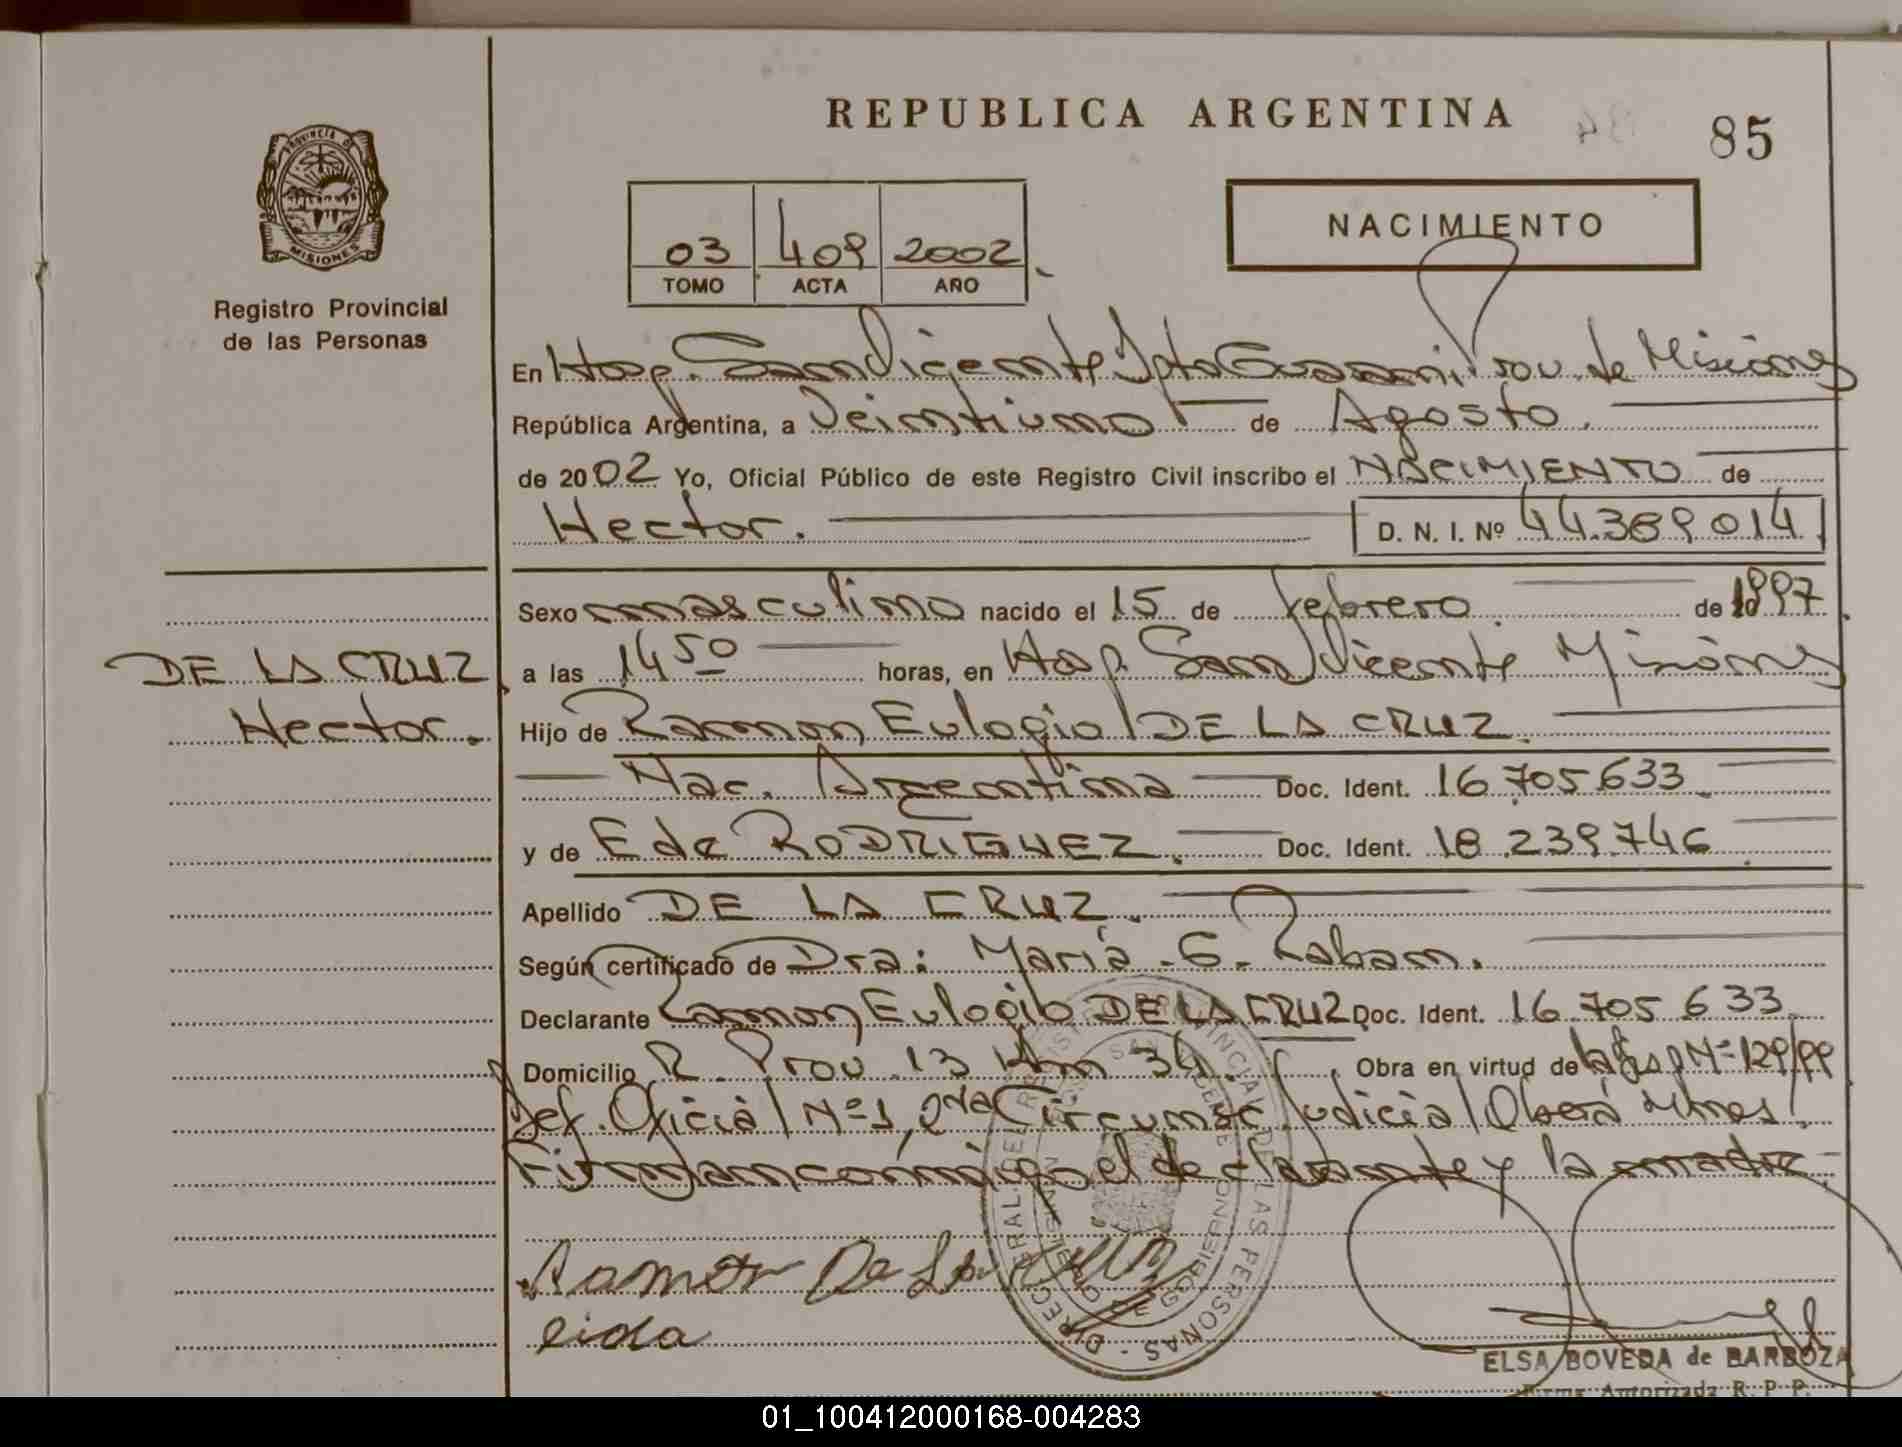 REPUBLICA ARGENTINA
85
PROVINCIA DE
MISIONES
Registro Provincial
de las Personas
03 409 2002
TOMO ACTA AÑO
NACIMIENTO
En Hosp. San Vicente Dpto Guarani Prov. de Misiones
República Argentina, a Veintiuno de Agosto.
de 2002 Yo, Oficial Público de este Registro Civil inscribo el NACIMIENTO de
Hector. D. N. I. Nº 44.389.014
Sexo masculino nacido el 15 de febrero de 1997
a las 14 50 horas, en Hosp. San Vicente Misiones
DE LA CRUZ
Hector.
Hijo de Ramon Eulogio DE LA CRUZ.
Nac. Argentina Doc. Ident. 16.705.633
y de Eda RODRIGUEZ. Doc. Ident. 18.239.746
Apellido DE LA CRUZ.
Según certificado de Dra: Maria G. Raham.
Declarante Ramon Eulogio DE LA CRUZ Doc. Ident. 16.705.633
Domicilio R. Prov. 13 Km 34. Obra en virtud de Nº 129/99
Def. Oficial Nº 1, 2da Circunsc. Judicial Oberá Mnes.
Firman conmigo el declarante y la madre
Ramon De La Cruz
eida
DIRECCION GENERAL DEL REGISTRO PROVINCIAL DE LAS PERSONAS
MINISTERIO DE GOBIERNO
SAN VICENTE
ELSA BOVEDA de BARBOZA
Firma Autorizada R. P. P.
01_100412000168-004283